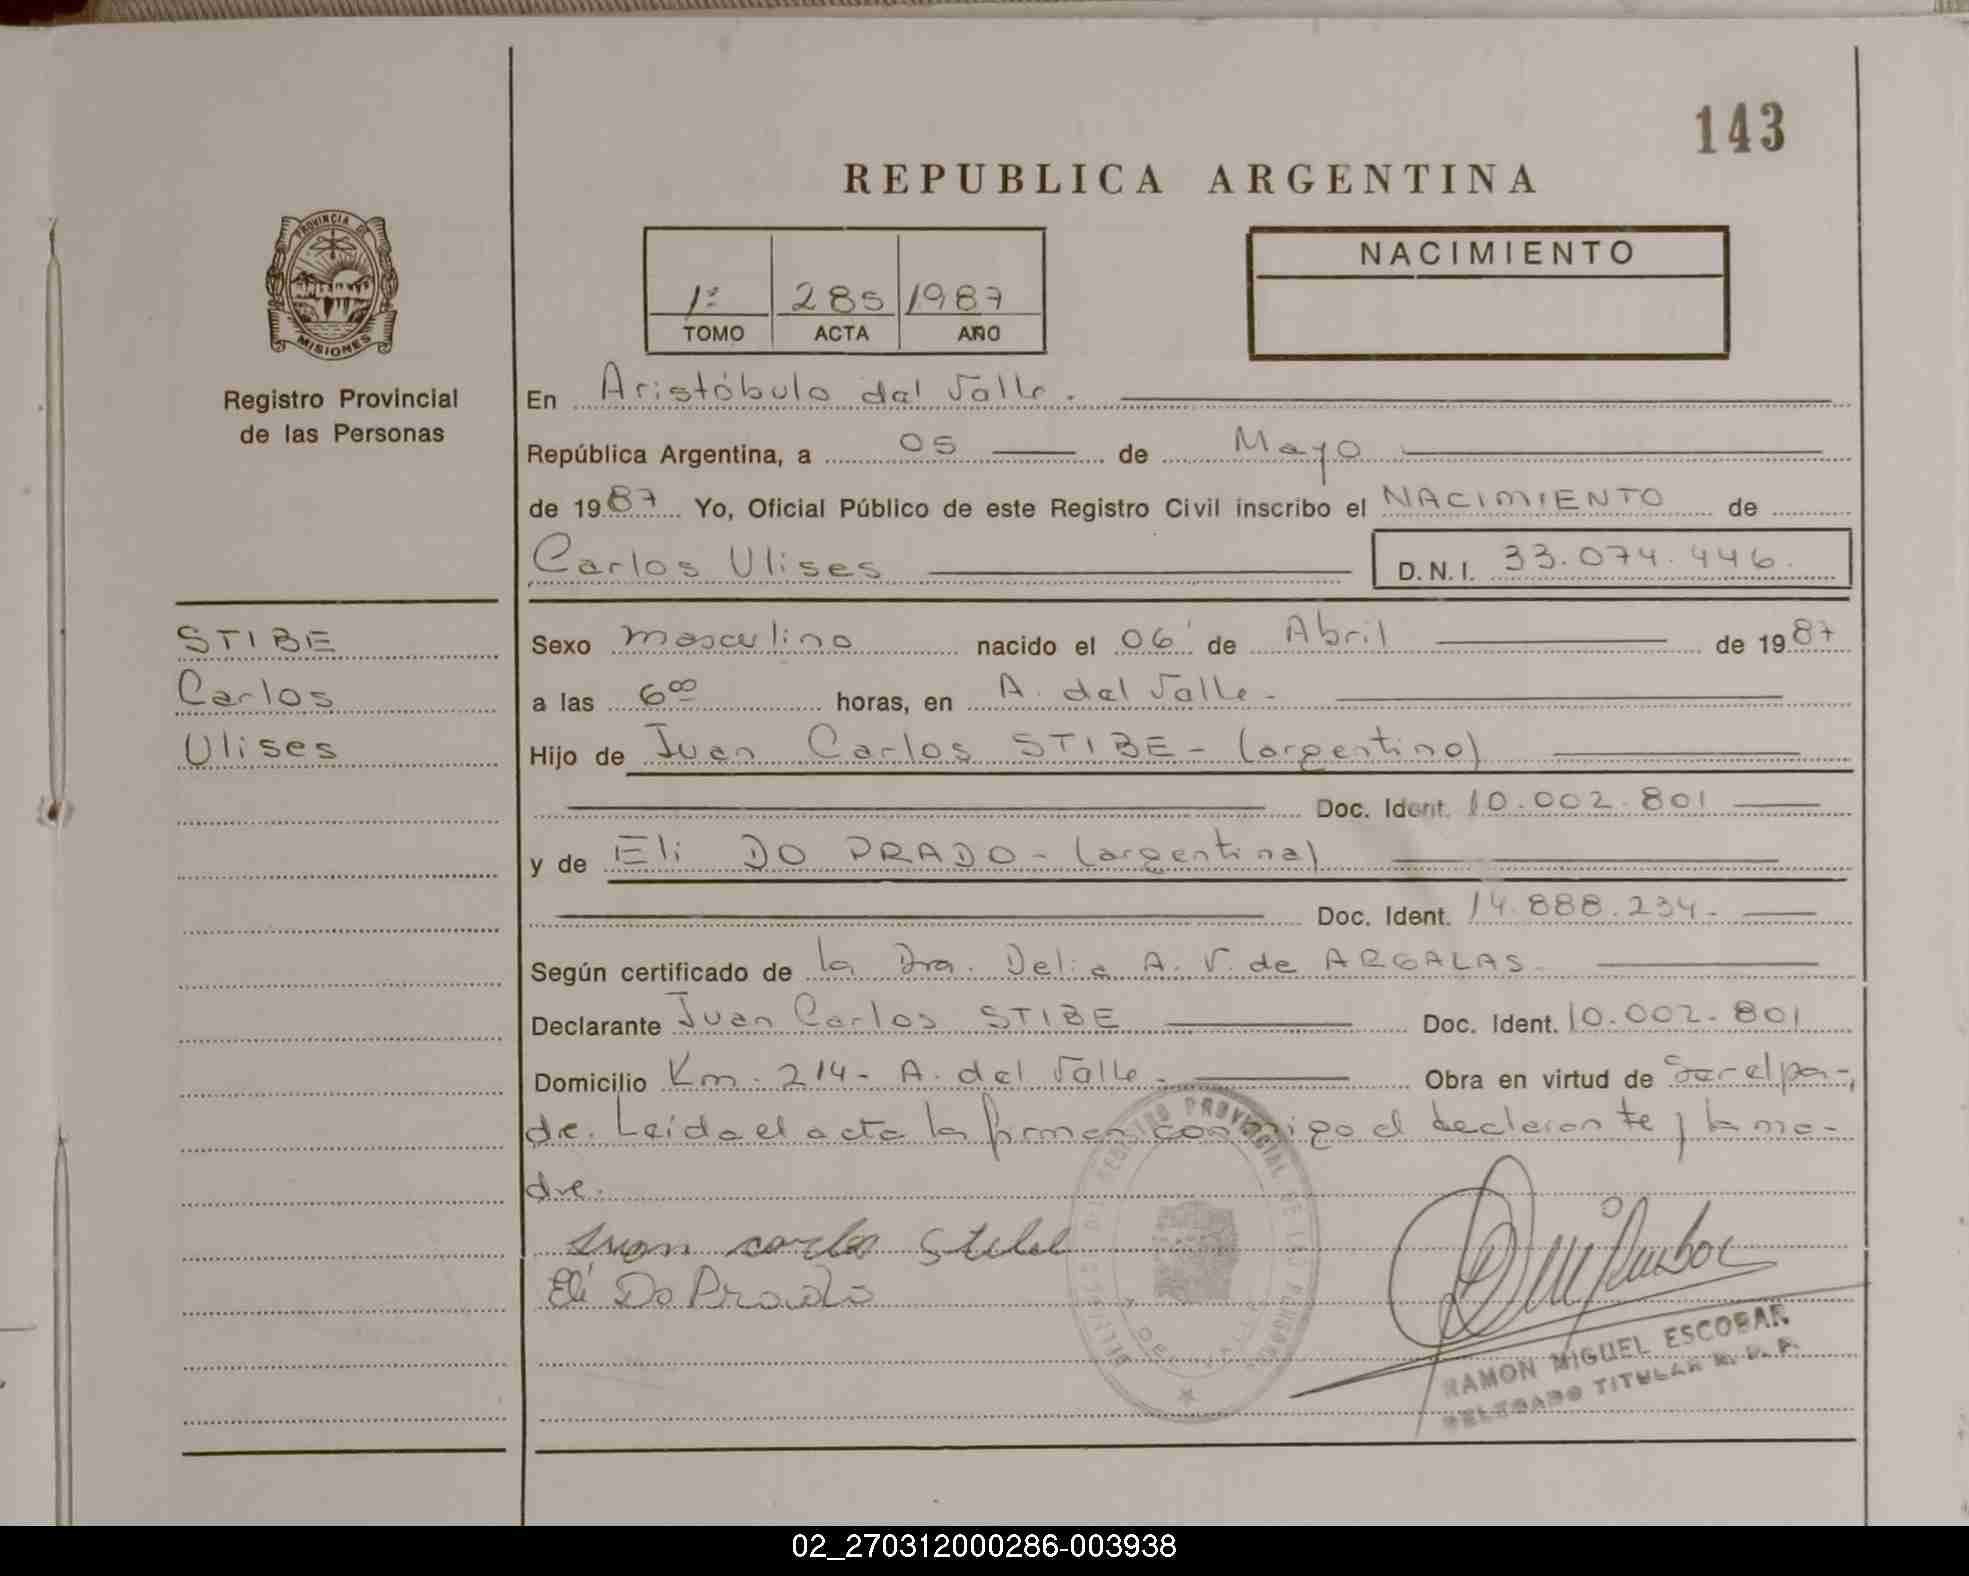 143
REPUBLICA ARGENTINA
PROVINCIA DE
MISIONES
Registro Provincial
de las Personas
1º 285 1987
TOMO ACTA AÑO
NACIMIENTO
En Aristóbulo del Valle.
República Argentina, a 05 de Mayo
de 1987 Yo, Oficial Público de este Registro Civil inscribo el NACIMIENTO de
Carlos Ulises D.N.I. 33.074.446.
STIBE
Carlos
Ulises
Sexo masculino nacido el 06 de Abril de 1987
a las 6⁰⁰ horas, en A. del Valle-
Hijo de Juan Carlos STIBE - (argentino)
Doc. Ident. 10.002.801
y de Eli DO PRADO - (argentina)
Doc. Ident. 14.888.234-
Según certificado de la Dra. Delia A. V. de ARGALAS.
Declarante Juan Carlos STIBE Doc. Ident. 10.002.801
Domicilio Km. 214- A. del Valle- Obra en virtud de Ser el pa-
dre. Leída el acta la firman conmigo el declarante y la ma-
dre.
Juan Carlos Stibe
Eli Do Prado
REGISTRO PROVINCIAL DE LAS PERSONAS
RAMON MIGUEL ESCOBAR
DELEGADO TITULAR R. P. P.
02_270312000286-003938